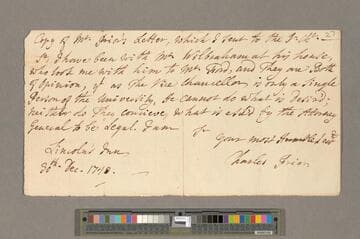 Copy of Mr. Prior's Letter, which I sent to the
Sr. I have been with Mr. Wilbraham at his house,
who took me with him to Mr. Ford, and They are Both
of Opinion, yt as The Vice Chancellor is only a single
Person of the University, he cannot do what is desir'd;
neither do They conceive, what is ask'd by the Attorney
General to be Legal. I am
Sr
Your most Humble Servt
Lincoln's Inn
Charles Prior
30th Dec. 1748.